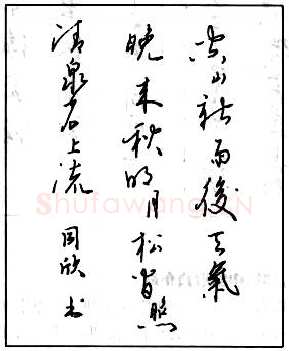 空山新雨後天氣
晚来秋明月松间照
清泉石上流 欣书
Shufawang.CN